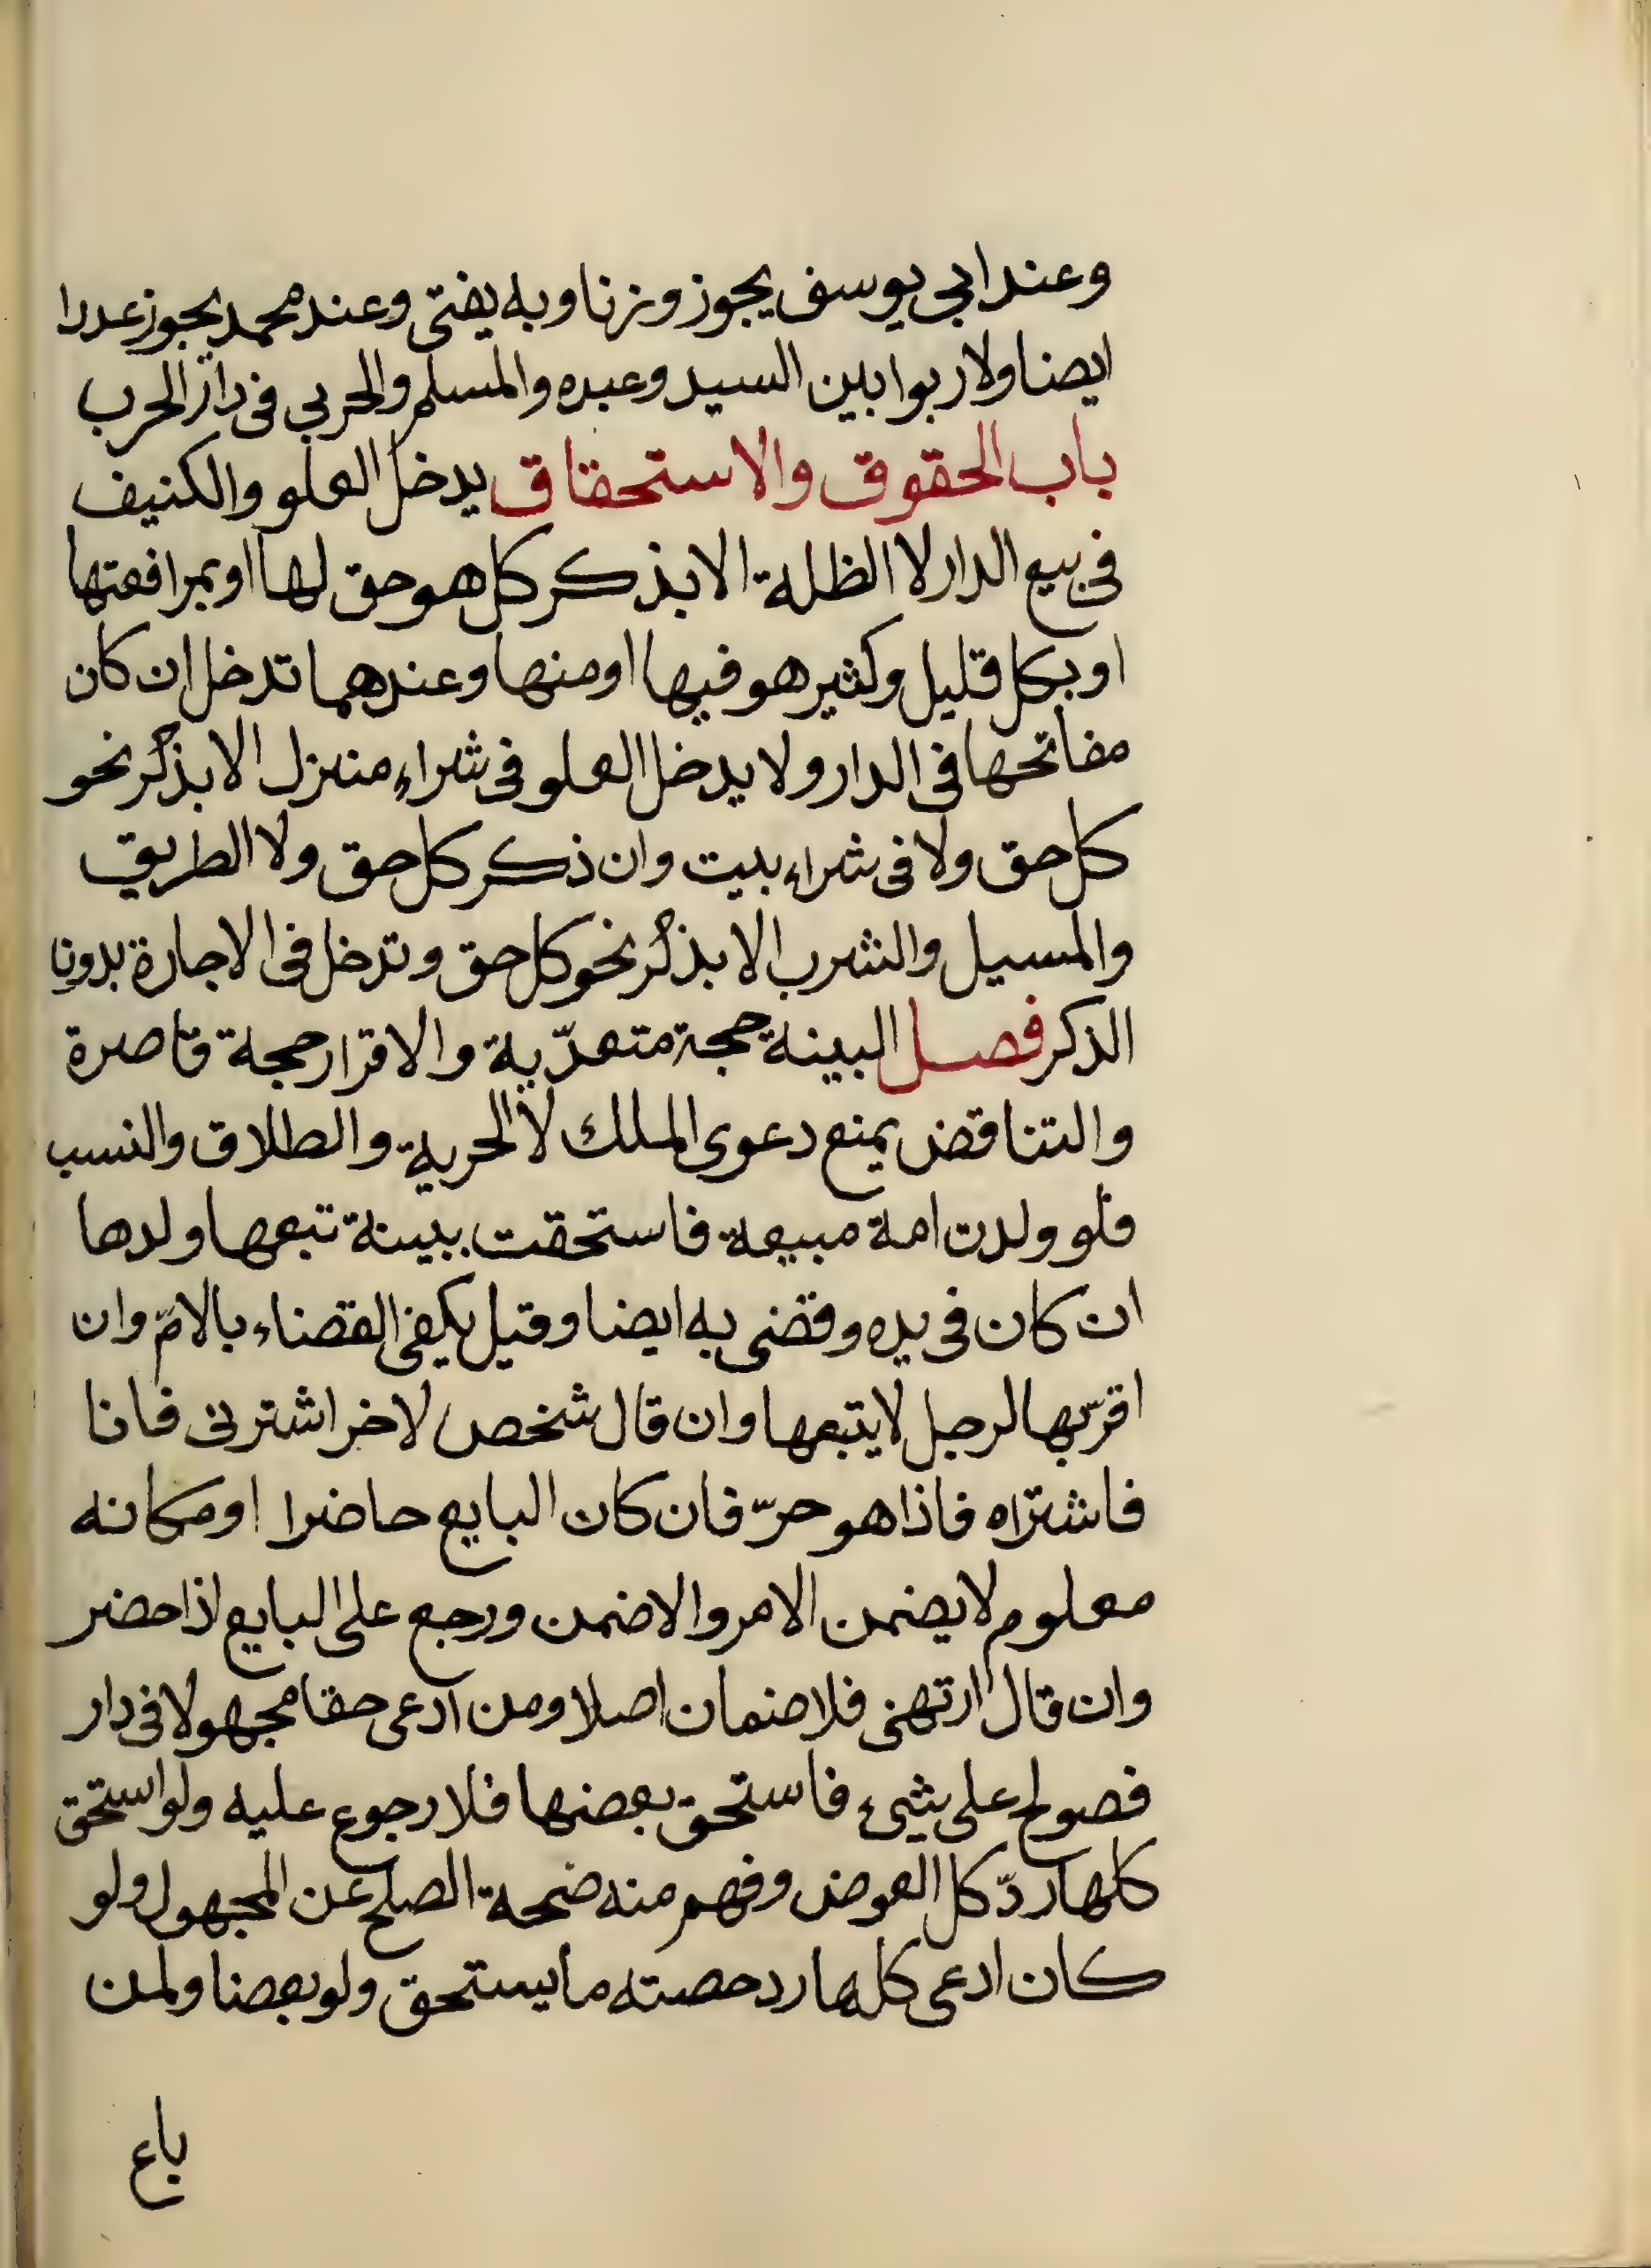 وعند ابي يوسف يجوز وزنا وبه يفتى وعند محمد يجوز عددا
ايضا ولا ربوا بين السيد وعبده والمسلم والحربي في دار الحرب
باب الحقوق والاستحقاق يدخل العلو والكنيف
في بيع الدار لا الظلة الا بذكر كل هو حق لها او بمرافعتها
او بكل قليل وكثير هو فيها او منها وعندهما تدخل ان كان
مفاتحها في الدار ولا يدخل العلو في شراء منزل الا بذكر نحو
كل حق ولا في شراء بيت وان ذكر كل حق ولا الطريق
والمسيل والشرب الا بذكر نحو كل حق وتدخل في الاجارة بدون
الذكر فصل البينة حجة متعدّية والاقرار حجة قاصرة
والتناقض يمنع دعوى الملك لا الحرية والطلاق والنسب
فلو ولدت امة مبيعة فاستحقت ببينة تبعها ولدها
ان كان في يده وقضى به ايضا وقيل يكفي القضاء بالامّ وان
اقرّ بها لرجل لا يتبعها وان قال شخص لاخر اشترني فانا
فاشتراه فاذا هو حرّ فان كان البايع حاضرا او مكانه
معلوم لا يضمن الامر والا ضمن ورجع على البايع اذا حضر
وان قال ارتهني فلا ضمان اصلا ومن ادعى حقا مجهولا في دار
فصولح على شيء فاستحق بعضها فلا رجوع عليه ولو استحق
كلها ردّ كل العوض وفهم منه صحة الصلح عن المجهول ولو
كان ادعى كلها رد حصته ما يستحق ولو بعضا ولمن
باع